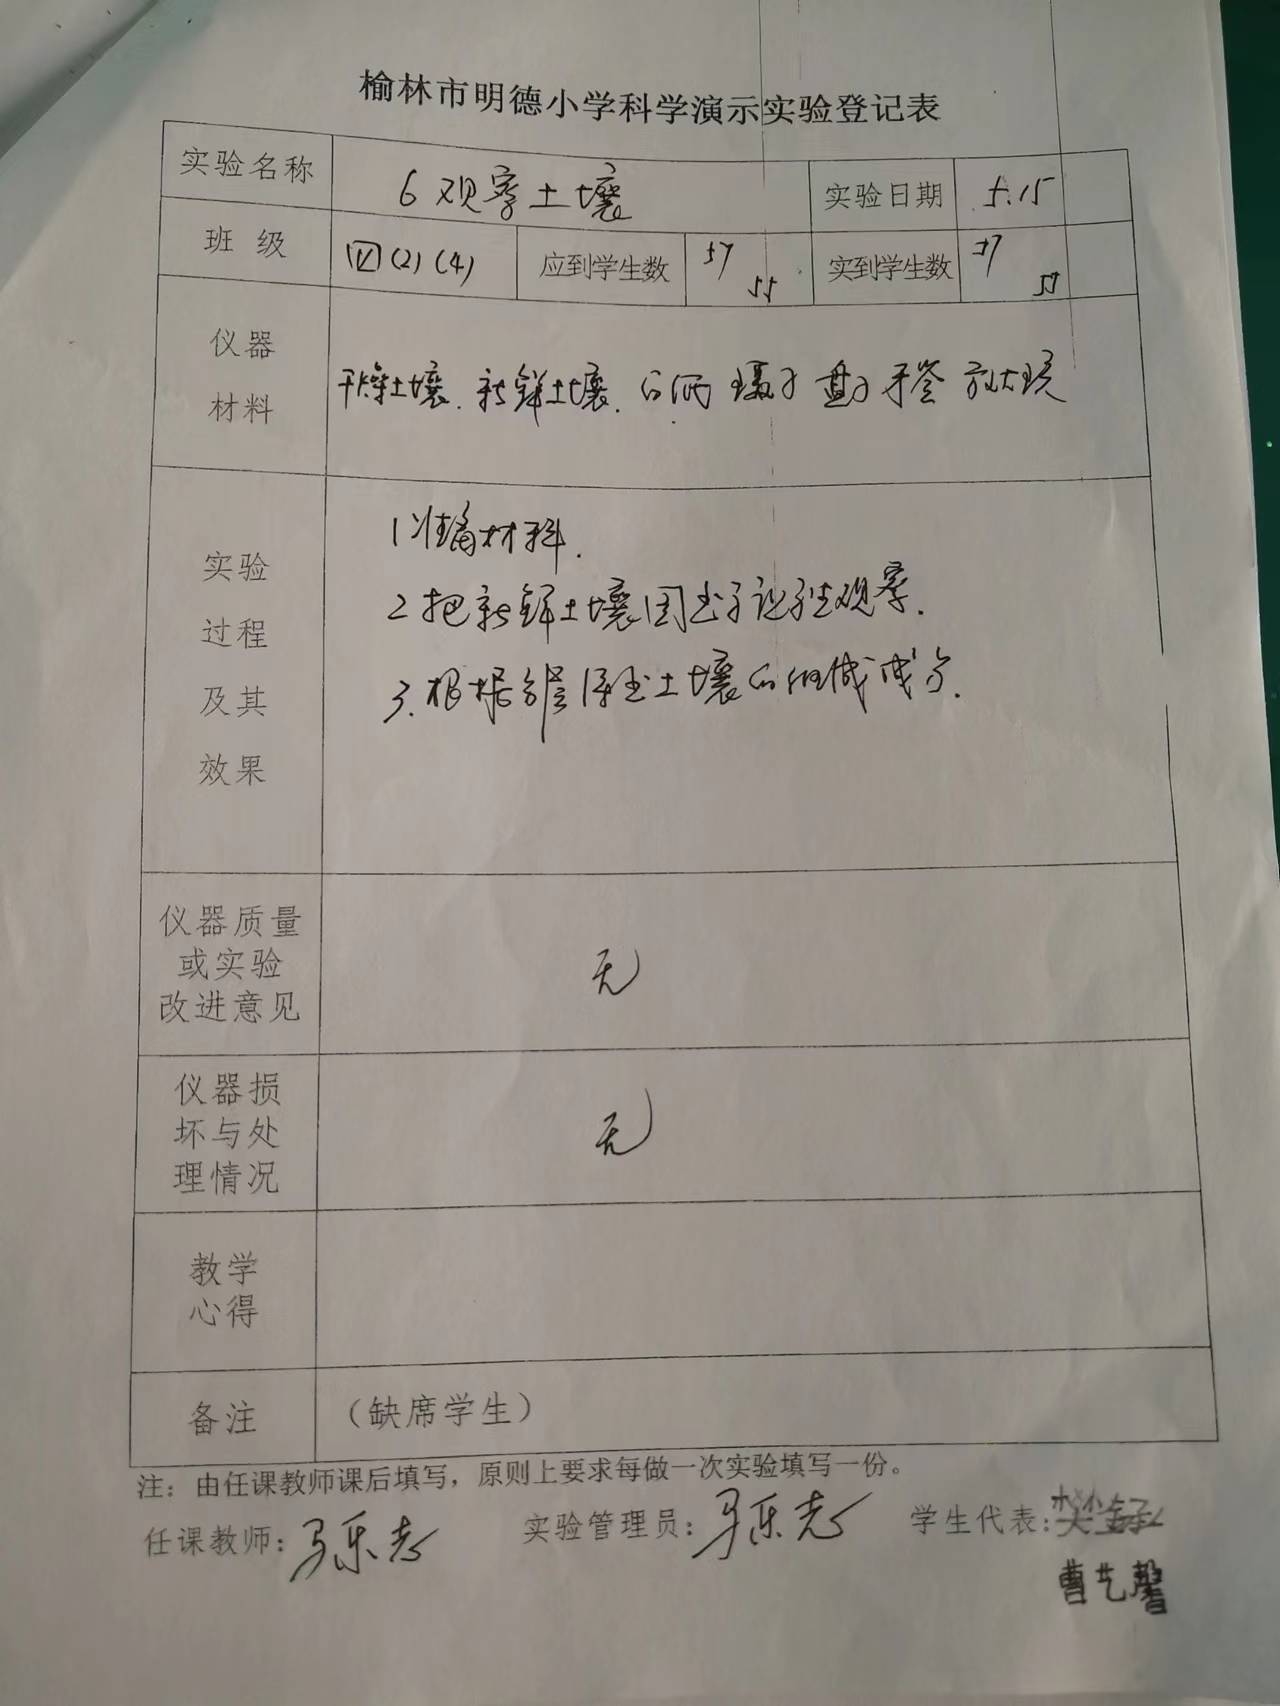 榆林市明德小学科学演示实验登记表
实验名称 6 观察土壤 实验日期 5.15
班 级 四(2)(4) 应到学生数 57 55 实到学生数 57 55
仪器
材料
干燥土壤. 新鲜土壤. 镊子 盘子 牙签 放大镜
实验
过程
及其
效果
1 准备材料.
2 把新鲜土壤 观察.
3. 根据 土壤的组成成分.
仪器质量
或实验
改进意见
无
仪器损
坏与处
理情况
无
教学
心得
备注 （缺席学生）
注：由任课教师课后填写，原则上要求每做一次实验填写一份。
任课教师：马乐志 实验管理员：马乐志 学生代表：
曹艺馨